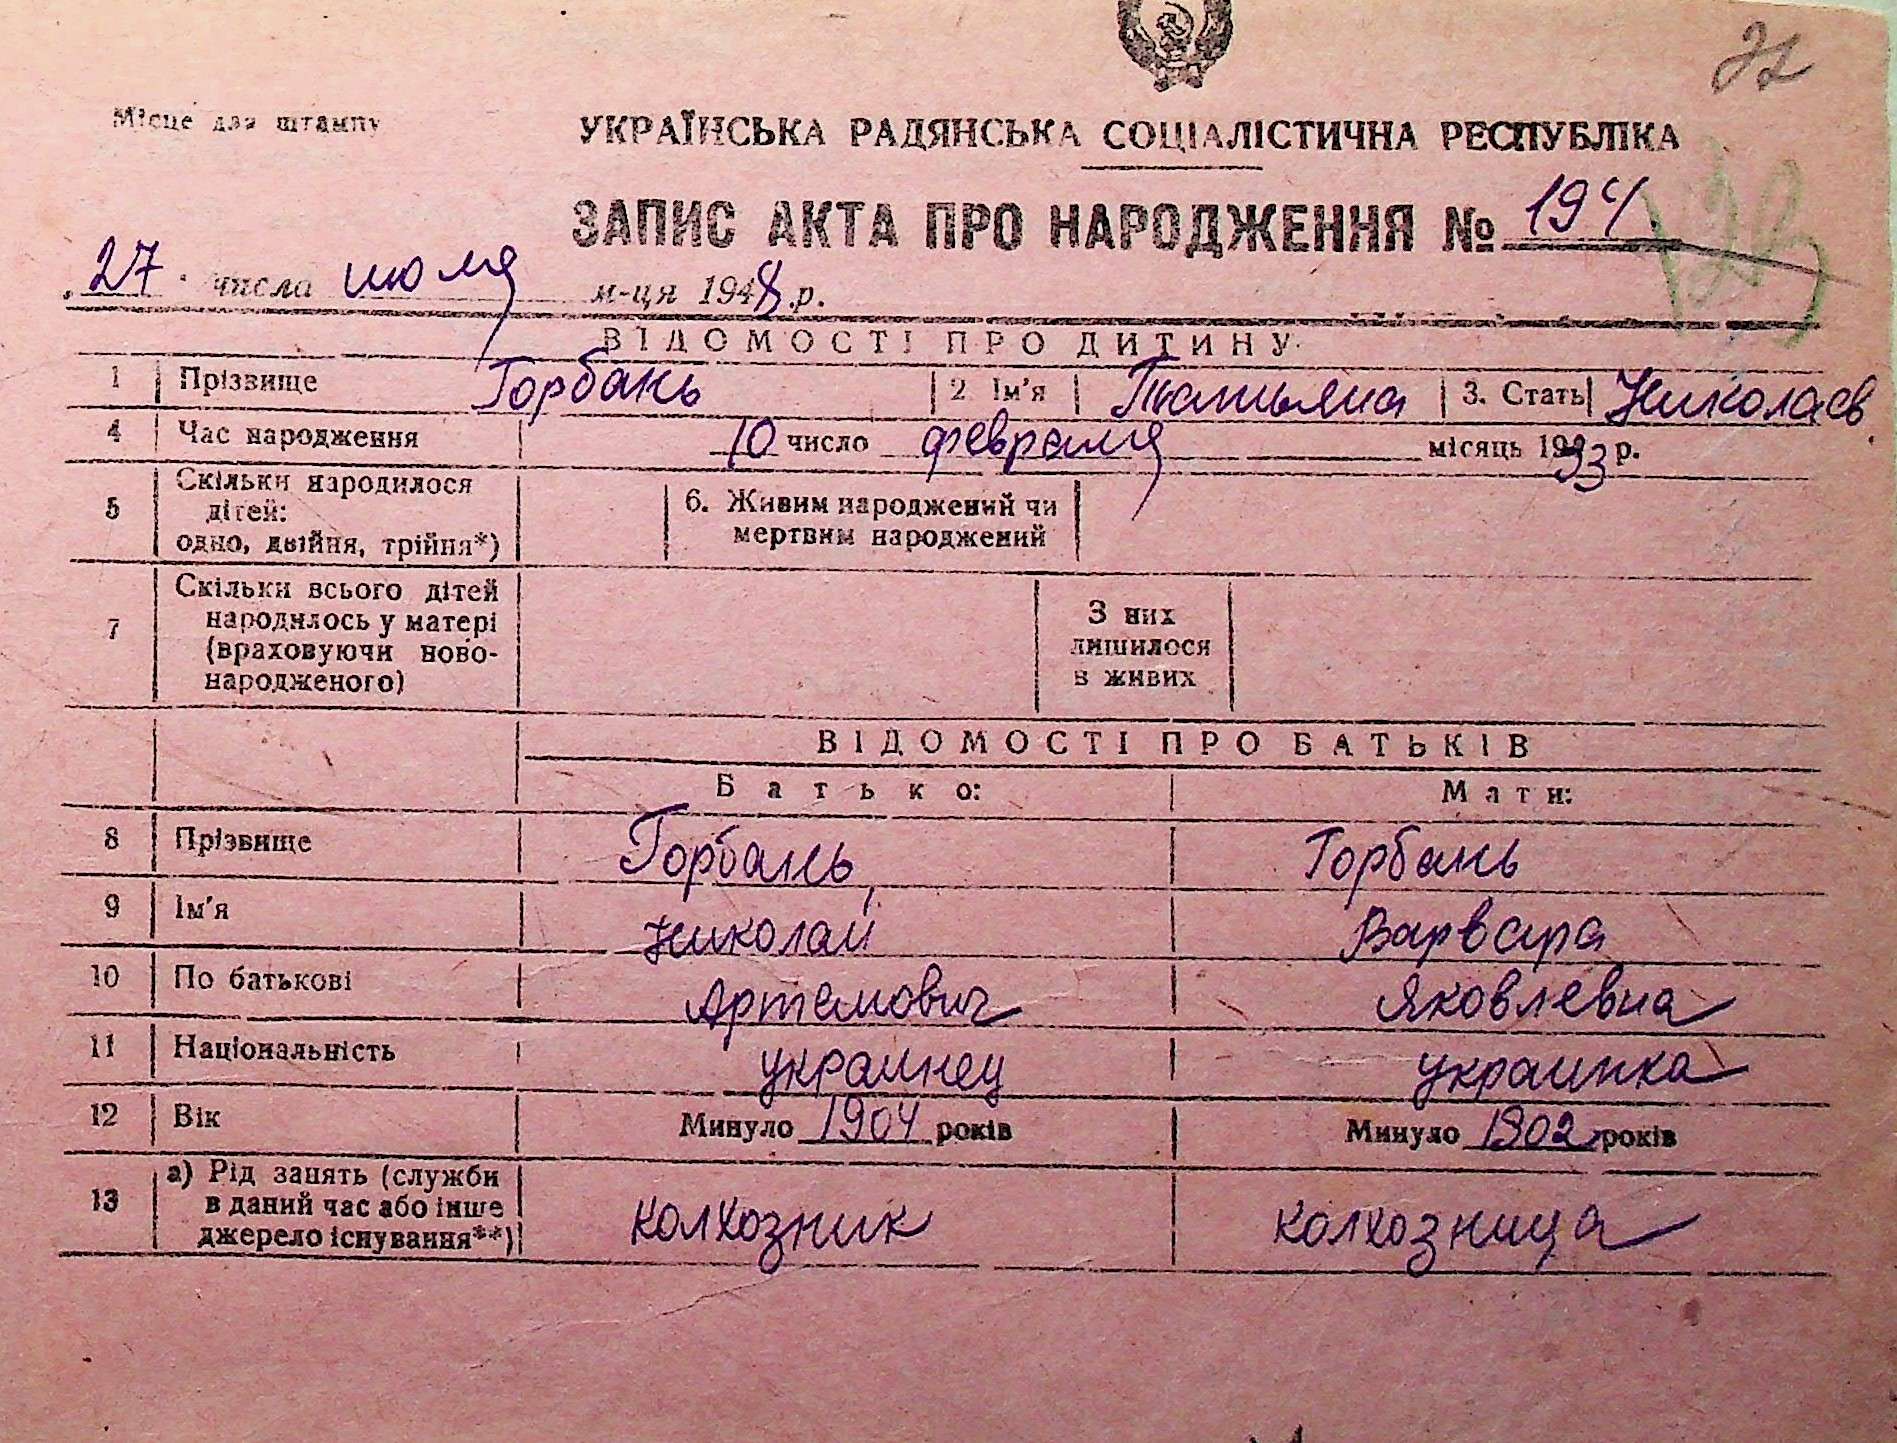 Місце для штампу
УКРАЇНСЬКА РАДЯНСЬКА СОЦІАЛІСТИЧНА РЕСПУБЛІКА
ЗАПИС АКТА ПРО НАРОДЖЕННЯ № 194
27 числа июля м-ця 1948 р.
ВІДОМОСТІ ПРО ДИТИНУ
1 Прізвище Горбань 2 Ім'я Татьяна 3. Стать Николаев.
4 Час народження 10 число февраля місяць 1933 р.
5 Скільки народилося дітей: одно, двійня, трійня*) 6. Живим народжений чи мертвим народжений
7 Скільки всього дітей народилось у матері (враховуючи ново-народженого) З них лишилося в живих
ВІДОМОСТІ ПРО БАТЬКІВ
Батько: Мати:
8 Прізвище Горбань Горбань
9 Ім'я Николай Варвара
10 По батькові Артемович Яковлевна
11 Національність украинец украинка
12 Вік Минуло 1904 років Минуло 1902 років
13 а) Рід занять (служби в даний час або інше джерело існування**) колхозник колхозница